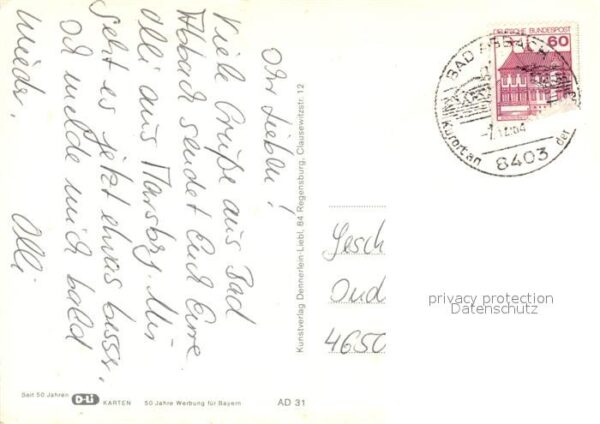 Ihr Lieben!
Viele Grüße aus Bad
Abbach sendet Euch Eure
Olli aus Marsberg. Mir
geht es jetzt etwas besser,
ich melde mich bald
wieder.
Olli
Kunstverlag Dennerlein-Liebl, 84 Regensburg, Clausewitzstr. 12
DEUTSCHE BUNDESPOST
60
BAD ABBACH
Kurort an der
8403
Gesch
Ond
4650
privacy protection
Datenschutz
Seit 50 Jahren D-Li KARTEN 50 Jahre Werbung für Bayern AD 31